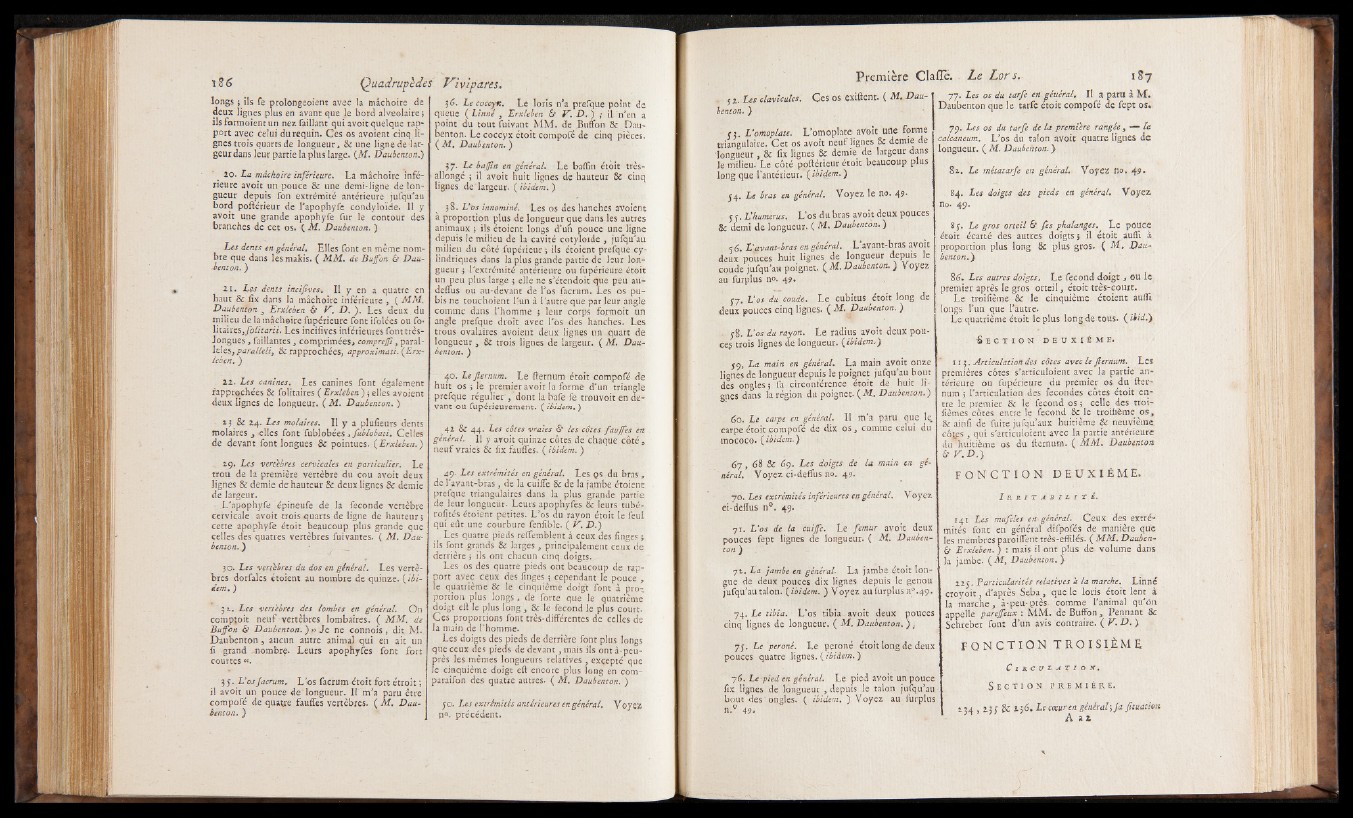 186 Quadrupèdes Vivipares.
longs ; ils ſe prolongeoient avec la mâchoire de
deux lignes plus en avant que le bord alvéolaire ;
ils formoient un nez ſaillant qui avoit quelque rap-
port avec celui du requin. Ces os avoient cinq li-
gnes trois quarts de longueur, & une ligne de lar-
geur dans leur partie la plus large. (M. Daubenton.)
20. La mâchoire inférieure. La mâchoire infé-
rieure avoit un pouce & une demi-ligne de lon-
gueur depuis ſon extrémité antérieure juſqu'au
bord poſtérieur de l'apophyſe condyloïde. Il y
avoit une grande apophyſe ſur le contour des
branches de cet os. ( M. Daubenton. )
Les dents en général. Elles ſont en même nom-
bre que dans les makis. ( MM. de Buffon & Dau-
benton. )
21. Les dents inciſives. Il y en a quatre en
haut & ſix dans la mâchoire inférieure , ( MM.
Daubenton , Erxleben & V. D. ). Les deux du
milieu de la mâchoire ſupérieure ſont iſolées ou ſo-
litaires, ſolitarii. Les inciſives inférieures ſont très-
longues, ſaillantes , comprimées, compreſſi , paral-
leles, paralleli, & rapprochées, approximati. (Erx-
leben. )
22. Les canines. Les canines ſont également
rapprochées & ſolitaires ( Erxleben ) ; elles avoient
deux lignes de longueur. ( M. Daubenton. )
23 & 24. Les molaires. Il y a pluſieurs dents
molaires , elles ſont ſublobées , ſublobati. Celles
de devant ſont longues & pointues. ( Erxleben. )
29. Les vertèbres cervicales en particulier. Le
trou de la première vertèbre du cou avoit deux
lignes & demie de hauteur & deux lignes & demie
de largeur.
L'apophyſe épineuſe de la ſeconde vertèbre
cervicale avoit trois quarts de ligne de hauteur ;
cette apophyſe étoit beaucoup plus grande que
celles des quatres vertèbres ſuivantes. ( M. Dau-
benton. )
30. Les vertèbres du dos en général. Les vertè-
bres dorſales étoient au nombre de quinze. ( ibi-
dem. )
32. Les vertèbres des lombes en général. On
comptoit neuf vertèbres lombaires. ( MM. de
Buffon & Daubenton. ) » Je ne connois , dit M.
Daubenton , aucun autre animal qui en ait un
ſi grand nombre. Leurs apophyſes ſont fort
courtes «.
35. L'os ſacrum. L'os ſacrum étoit fort étroit ;
il avoit un pouce de longueur. Il m'a paru être
compoſé de quatre fauſſes vertèbres. ( M. Dau-
benton. )
36. Le coccyx. Le loris n'a preſque point de
queue ( Linné , Erxleben & V. D. ) ; il n'en a
point du tout ſuivant MM. de Buffon & Dau-
benton. Le coccyx étoit compoſé de cinq pièces.
( M. Daubenton. )
37. Le baſſin en général. Le baſſin étoit très-
allongé ; il avoit huit lignes de hauteur & cinq
lignes de largeur. ( ibidem. )
38. L'os innominé. Les os des hanches avoient
à proportion plus de longueur que dans les autres
animaux ; ils étoient longs d'un pouce une ligne
depuis le milieu de la cavité cotyloïde , juſqu'au
milieu du côté ſupérieur ; ils étoient preſque cy-
lindriques dans la plus grande partie de leur lon-
gueur ; l'extrémité antérieure ou ſupérieure étoit
un peu plus large ; elle ne s'étendoit que peu au-
deſſus ou au-devant de l'os ſacrum. Les os pu-
bis ne touchoient l'un à l'autre que par leur angle
comme dans l'homme ; leur corps formoit un
angle preſque droit avec l'os des hanches. Les
trous ovalaires avoient deux lignes un quart de
longueur , & trois lignes de largeur. ( M. Dau-
benton. )
40. Le ſternum. Le ſternum étoit compoſé de
huit os ; le premier avoit la forme d'un triangle
preſque régulier , dont la baſe ſe trouvoit en de-
vant ou ſupérieurement. ( ibidem. )
42 & 44. Les côtes vraies & les côtes fauſſes en
général. Il y avoit quinze côtes de chaque côté ,
neuf vraies & ſix fauſſes. ( ibidem. )
49. Les extrémités en général. Les os du bras ,
de l'avant-bras , de la cuiſſe & de la jambe étoient
preſque triangulaires dans la plus grande partie
de leur longueur. Leurs apophyſes & leurs tubé-
roſités étoient petites. L'os du rayon étoit le ſeul
qui eût une courbure ſenſible. ( V. D.)
Les quatre pieds reſſemblent à ceux des ſinges ;
ils ſont grands & larges , principalement ceux de
derrière ; ils ont chacun cinq doigts.
Les os des quatre pieds ont beaucoup de rap-
port avec ceux des ſinges ; cependant le pouce ,
le quatrième & le cinquième doigt ſont à pro-
portion plus longs , de ſorte que le quatrième
doigt eſt le plus long , & le ſecond le plus court.
Ces proportions ſont très-différentes de celles de
la main de l'homme.
Les doigts des pieds de derrière ſont plus longs
que ceux des pieds de devant , mais ils ont à-peu-
près les mêmes longueurs relatives , excepté que
le cinquième doigt eſt encore plus long en com-
paraiſon des quatre autres. ( M. Daubenton. )
50. Les extrémités antérieures en général. Voyez
no. précédent.
Première Claſſe. Le Lors. 187
52. Les clavicules. Ces os exiſtent. ( M. Dau-
benton. )
53. L'omoplate. L'omoplate avoit une forme
triangulaire. Cet os avoit neuf lignes & demie de
longueur , & ſix lignes & demie de largeur dans
le milieu. Le côté poſtérieur étoit beaucoup plus
long que l'antérieur. ( ibidem. )
54. Le bras en général. Voyez le no. 49.
55. L'humerus. L'os du bras avoit deux pouces
& demi de longueur. ( M. Daubenton. )
56. L'avant-bras en général. L'avant-bras avoit
deux pouces huit lignes de longueur depuis le
coude juſqu'au poignet. ( M. Daubenton. ) Voyez
au ſurplus no. 49.
57. L'os du coude. Le cubitus étoit long de
deux pouces cinq lignes. ( M. Daubenton. )
58. L'os du rayon. Le radius avoit deux pou-
ces trois lignes de longueur. ( ibidem. )
59. La main en général. La main avoit onze
lignes de longueur depuis le poignet juſqu'au bout
des ongles ; ſa circonférence étoit de huit li-
gnes dans la région du poignet. ( M. Daubenton. )
60. Le carpe en général. Il m'a paru que le
carpe étoit compoſé de dix os , comme celui du
mococo. ( ibidem. )
67 , 68 & 69. Les doigts de la main en gé-
néral. Voyez ci-deſſus no. 49.
70. Les extrémités inférieures en général. Voyez
ci-deſſus n°. 49.
71. L'os de la cuiſſe. Le femur avoit deux
pouces ſept lignes de longueur. ( M. Dauben-
ton )
72. La jambe en général. La jambe étoit lon-
gue de deux pouces dix lignes depuis le genou
juſqu'au talon. ( ibidem. ) Voyez au ſurplus n°. 49.
74. Le tibia. L'os tibia avoit deux pouces
cinq lignes de longueur. ( M. Daubenton. )
75. Le peroné. Le peroné étoit long de deux
pouces quatre lignes. ( ibidem. )
76. Le pied en général. Le pied avoit un pouce
ſix lignes de longueur , depuis le talon juſqu'au
bout des ongles. ( ibidem. ) Voyez au ſurplus
n.° 49.
77. Les os du tarſe en général. Il a paru à M.
Daubenton que le tarſe étoit compoſé de ſept os.
79. Les os du tarſe de la première rangée, — le
calcaneum. L'os du talon avoit quatre lignes de
longueur. ( M. Daubenton. )
82. Le métatarſe en général. Voyez no. 49.
84. Les doigts des pieds en général. Voyez
no. 49.
85. Le gros orteil & ſes phalanges. Le pouce
étoit écarté des autres doigts ; il étoit auſſi à
proportion plus long & plus gros. ( M. Dau-
benton.)
86. Les autres doigts. Le ſecond doigt , ou le
premier après le gros orteil , étoit très-court.
Le troiſième & le cinquième étoient auſſi
longs l'un que l'autre.
Le quatrième étoit le plus long de tous. ( ibid.)
SECTION DEUXIÈME.
113. Articulation des côtes avec le ſternum. Les
premières côtes s'articuloient avec la partie an-
térieure ou ſupérieure du premier os du ſter-
num ; l'articulation des ſecondes côtes étoit en-
tre le premier & le ſecond os ; celle des troi-
ſièmes côtes entre le ſecond & le troiſième os,
& ainſi de ſuite juſqu'aux huitième & neuvième
côtes , qui s'articuloient avec la partie antérieure
du huitième os du ſternum. ( MM. Daubenton
& V. D.)
FONCTION DEUXIÈME.
IRRITABILITÉ.
141 Les muſcles en général. Ceux des extré-
mités ſont en général diſpoſés de manière que
les membres paroiſſent très-effilés. ( MM. Dauben-
& Erxleben. ) : mais il ont plus de volume dans
la jambe. ( M, Daubenton. )
225. Particularités relatives à la marche. Linné
croyoit , d'après Seba , que le loris étoit lent à
la marche , à-peu-près comme l'animal qu'on
appelle pareſſeux : MM. de Buffon , Pennant &
Schreber ſont d'un avis contraire. ( V. D. )
FONCTION TROISIÈME
CIRCULATION.
SECTION PREMIÈRE.
234 , 235 & 236. Le cœur en général ; ſa ſituation
A a 2